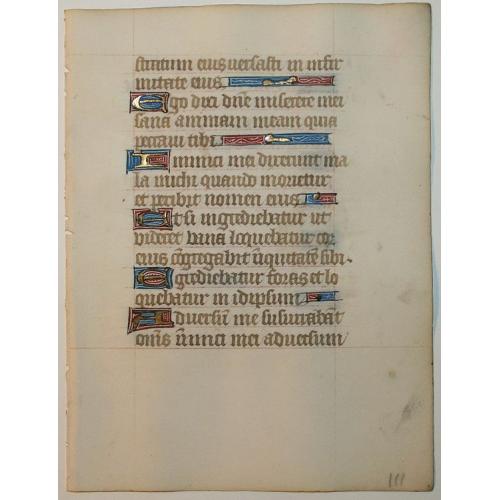 stratum eius versasti in infir
mitate eius
Ego dixi dñe miserere mei
sana animam meam quia
peccavi tibi
Inimici mei dixerunt ma
la michi quando morietur
et peribit nomen eius
Et si ingrediebatur ut
videret vana loquebatur cor
eius cõgregavit iñiquitatẽ sibi.
Egrediebatur foras et lo
quebatur in idipsum
Adversũ me susurrabãt
om̃s inimici mei adversum
111